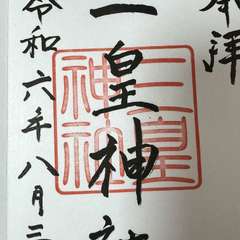 奉拝
三皇神社
三皇神社
令和六年八月三